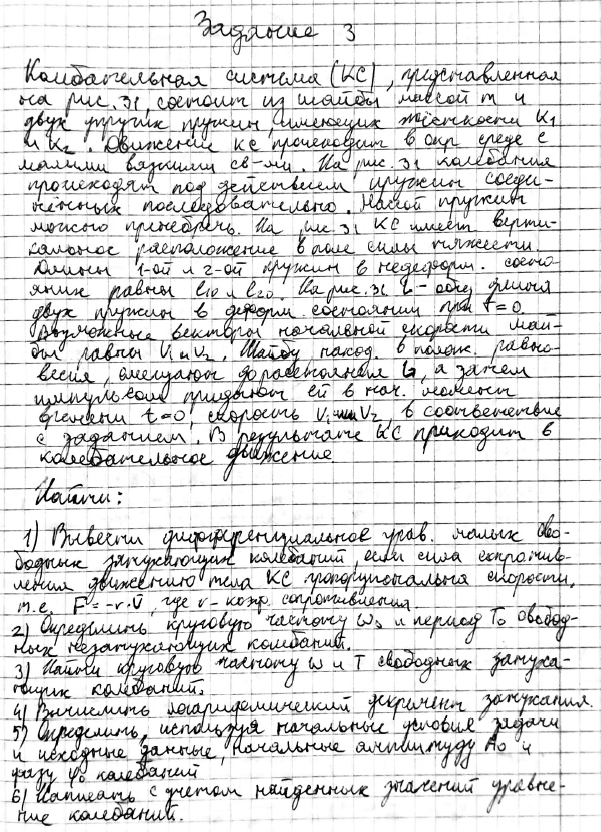 Задание 3
Колебательная система (КС), представленная
на рис. 31, состоит из шайбы массой m и
двух упругих пружин, имеющих жёсткости K1
и K2. Движение КС происходит в окр среде с
малыми вязкими св-ми. На рис. 31 колебания
происходят под действием пружин соеди-
нённых последовательно. Массой пружин
можно пренебречь. На рис. 31 КС имеет верти-
кальное расположение в поле силы тяжести.
Длины 1-ой и 2-ой пружин в недеформ. состо-
янии равны l10 и l20. На рис. 31 L - общ длина
двух пружин в деформ. состоянии при t=0.
Возможные векторы начальной скорости шай-
бы равны V1 и V2. Шайбу, наход. в полож. равно-
весия, смещают до расстояния L, а затем
импульсом придают ей в нач. момент
времени t=0, скорость V1 или V2, в соответствие
с заданием. В результате КС приходит в
колебательное движение
Найти:
1) Вывести дифференциальное урав. малых сво-
бодных затухающих колебаний, если сила сопротив-
ления движению тела КС пропорциональна скорости,
т.е. F = -r·V, где r - коэф. сопротивления.
2) Определить круговую частоту ω0 и период T0 свобод-
ных незатухающих колебаний.
3) Найти круговую частоту ω и T свободных затуха-
ющих колебаний.
4) Вычислить логарифмический декремент затухания.
5) Определить, используя начальные условия задачи
и исходные данные, начальные амплитуду A0 и
фазу φ0 колебаний
6) Написать с учетом найденных значений уравне-
ние колебаний.